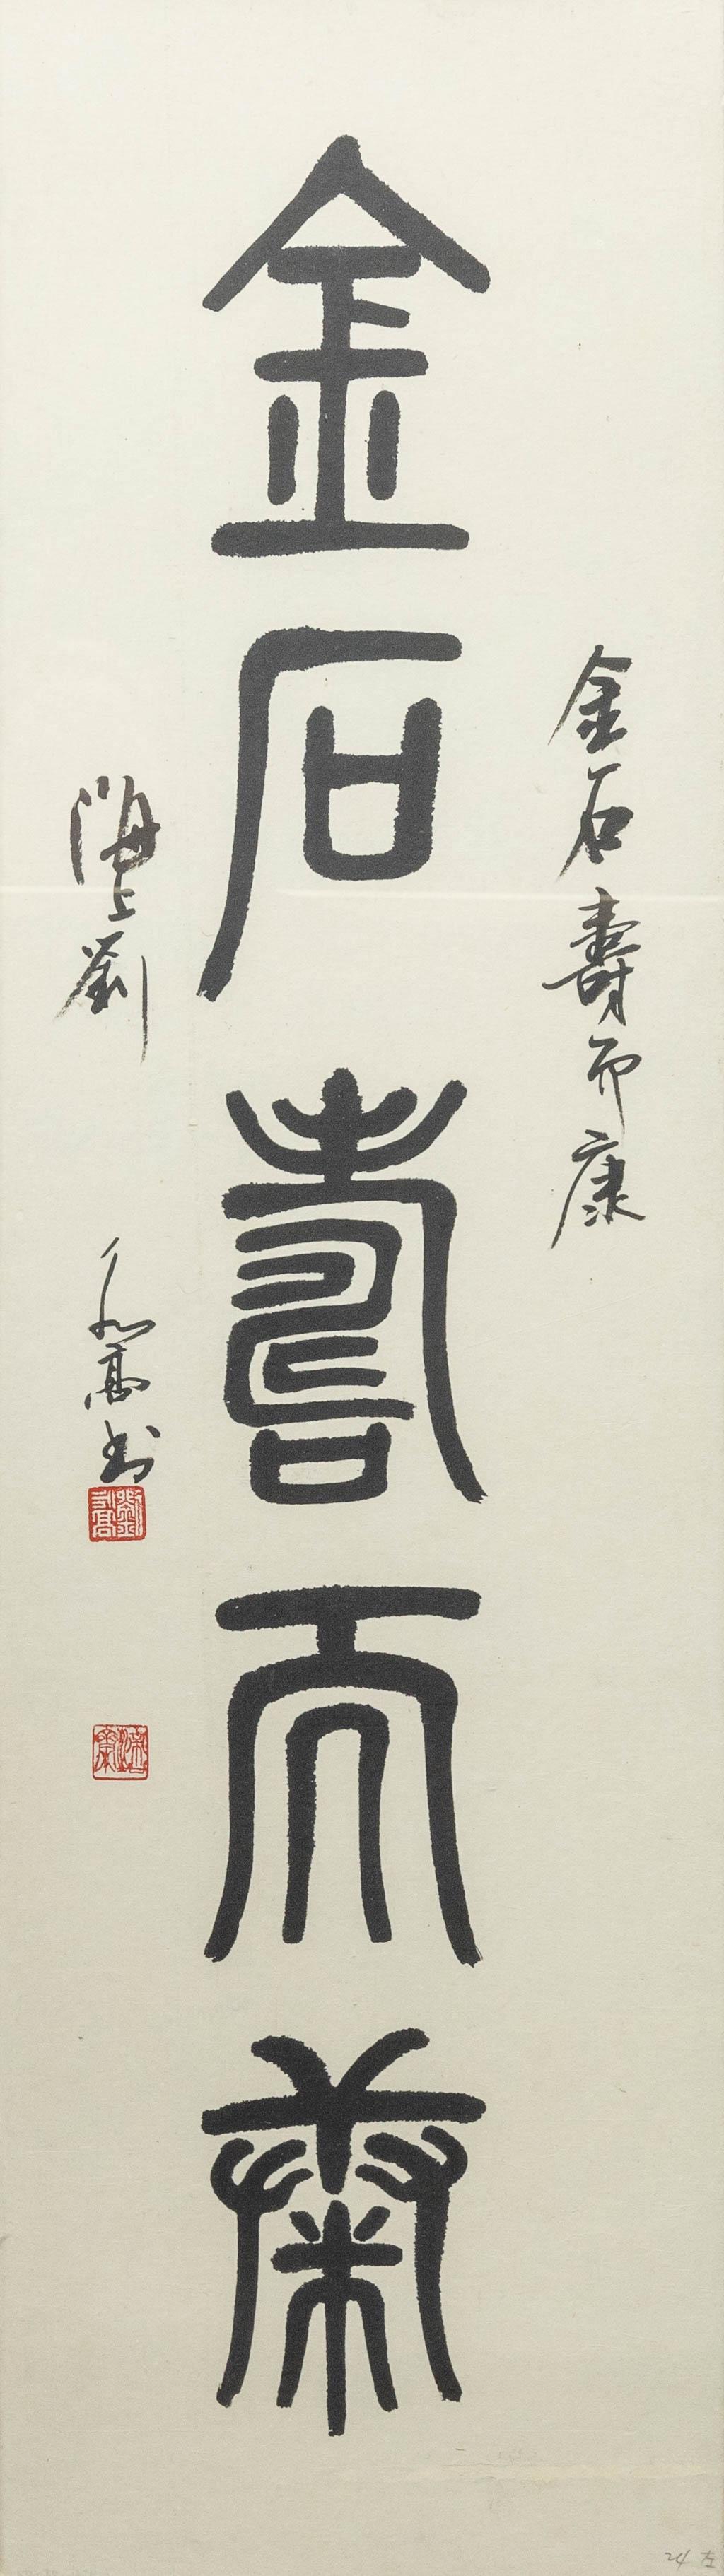 金石壽而康
金石壽而康
海上劉
高書
24 左